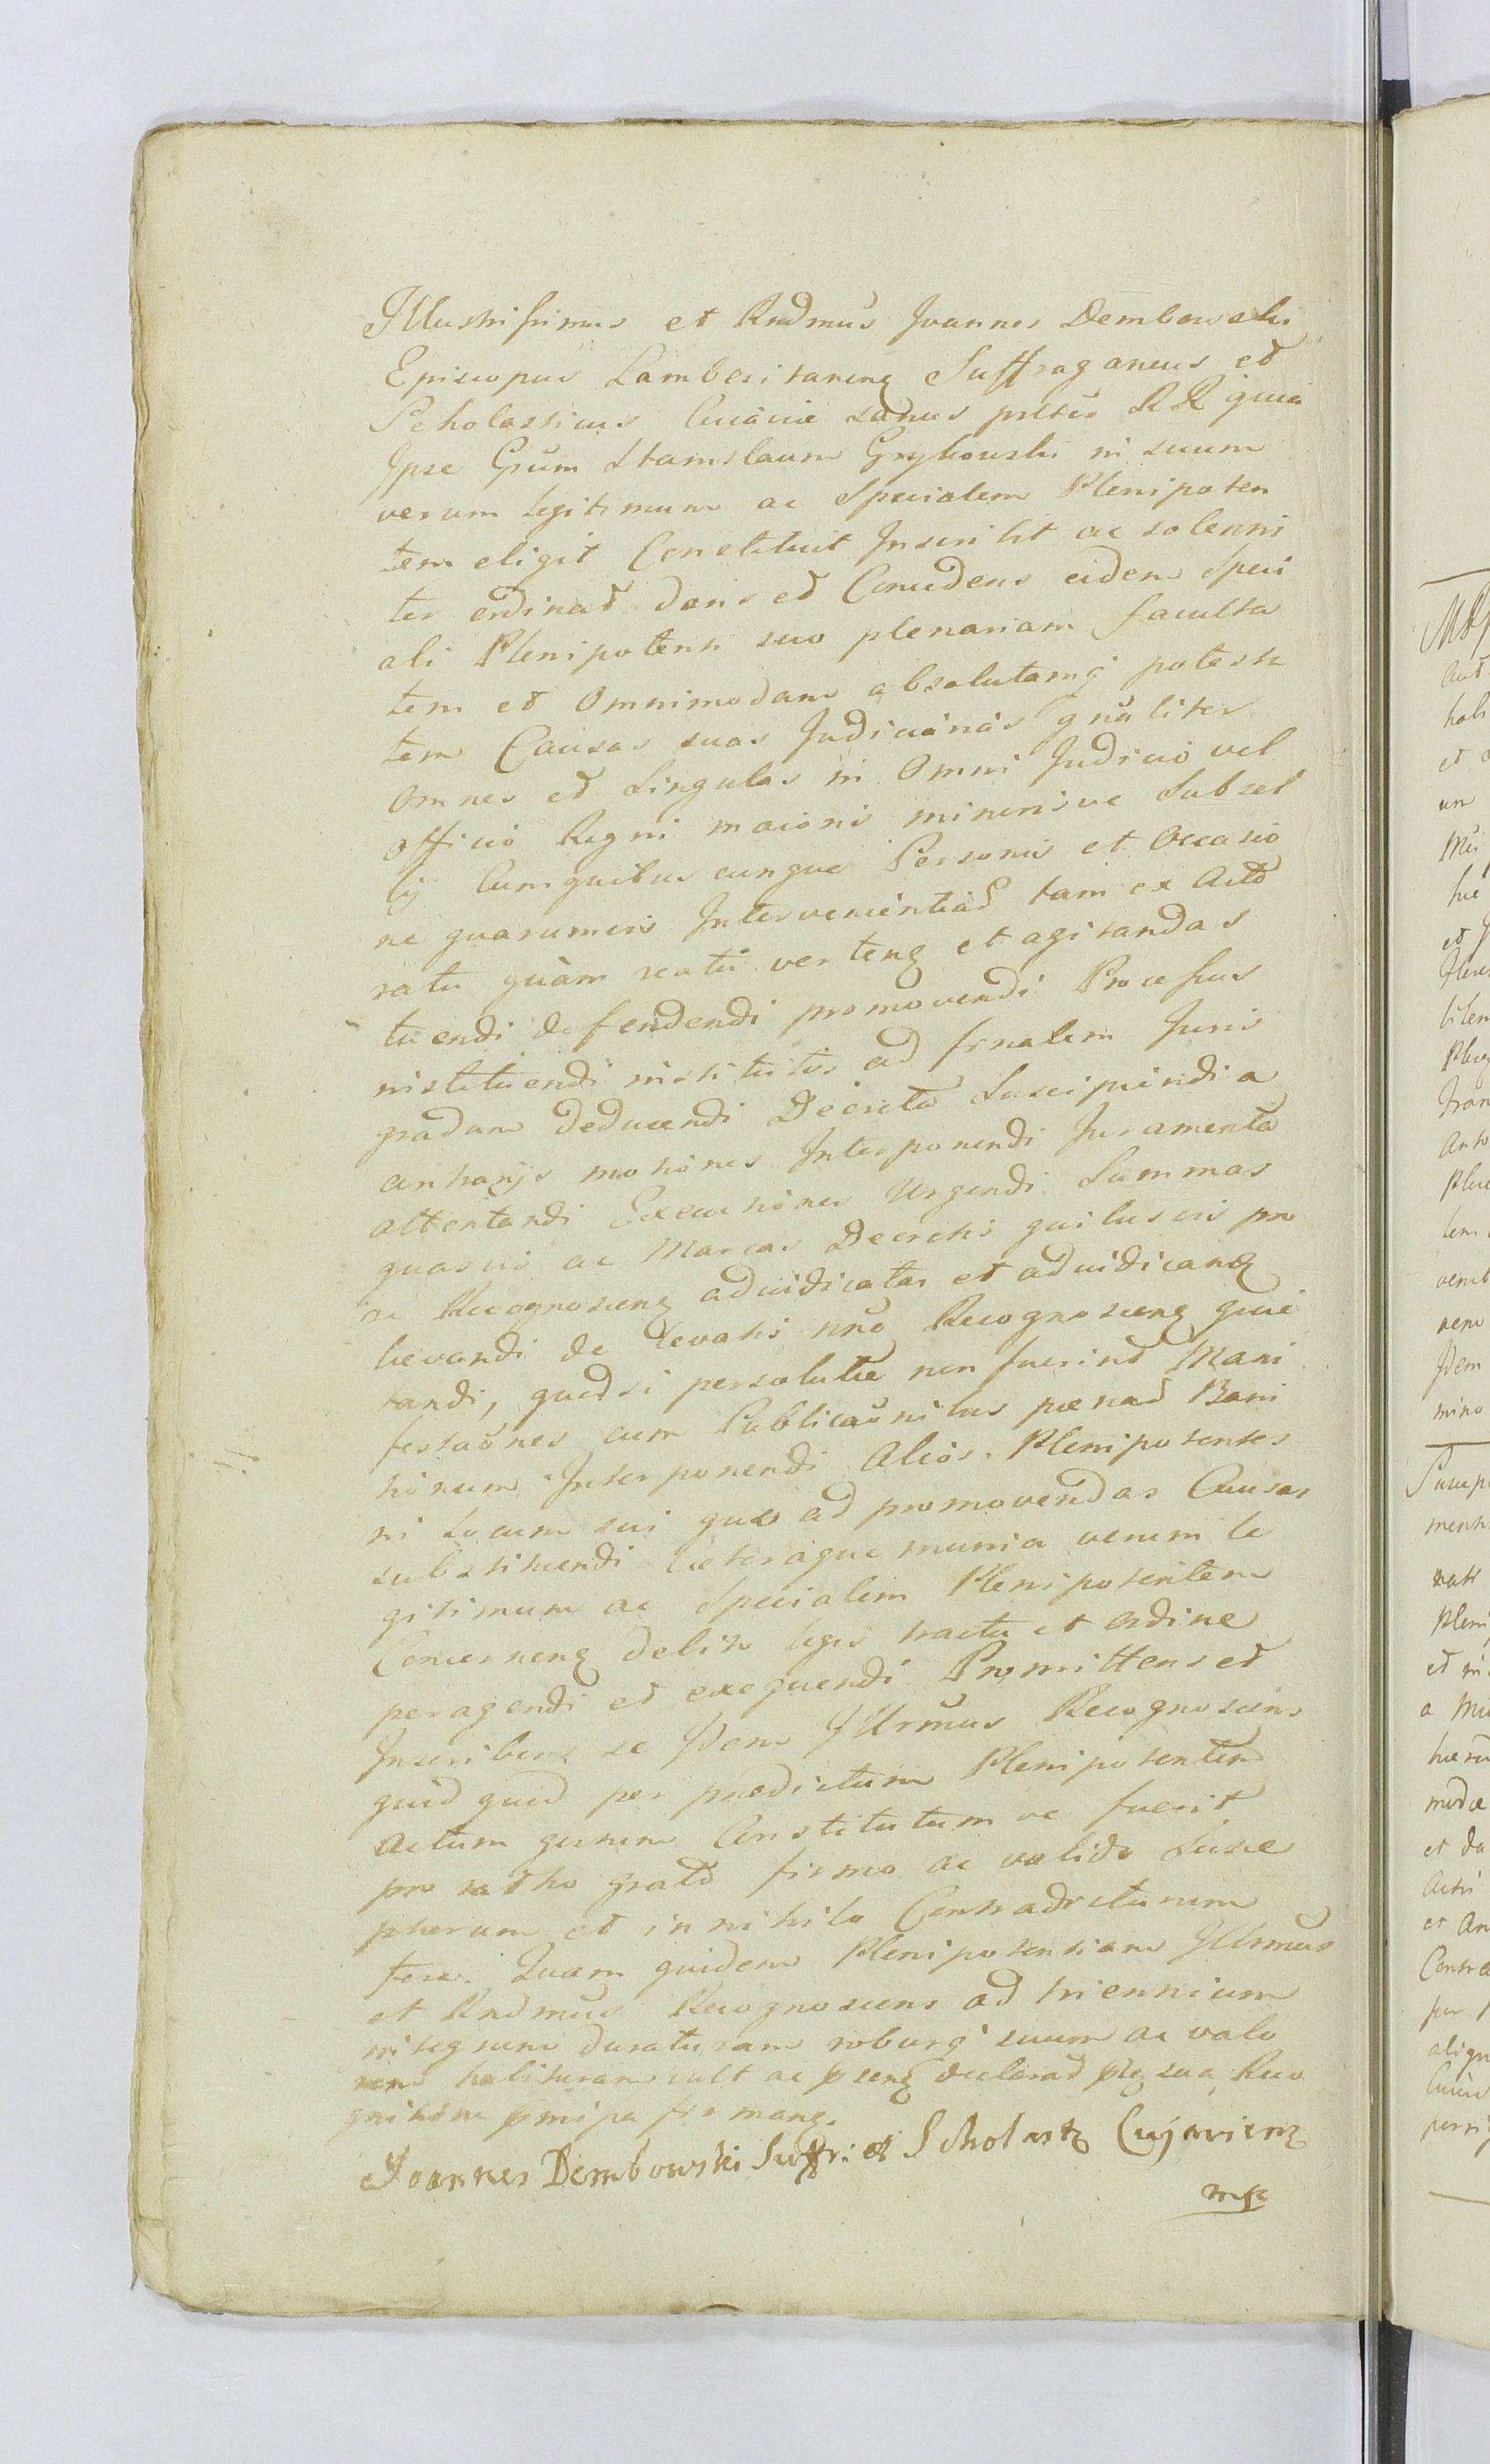 Illustrissimus et Rndmus Joannes Dembowski
Episcopus Lambesitanens Suffraganeus et
Scholasticus Cuiaviae sanus RR quia
Ipse Gsum Stanislaum Grykowski in suum
verum legitimum ac Specialem Plenipoten
tem eligit Constituit Inscribit ac solenni
ter ordinat dans et Concedens eidem Speci
ali Plenipotenti suo plenariam faculta
tem et Omnimodam absolutamq potesta
tem Causas suas Judiciarias gnaliter
Omnes et Singulas in Omni Judicio vel
officio Regni maioris minorisve Subsel
lij Cum quibus cunque Personis et Occasio
ne quarumvis Intervenientiar tam ex Acto
ratu quam reatu verteng et agitandas
tuendi defendendi promovendi Processus
instituendi institutos ad finalem Juris
gradum deducendi Decreta Suscipiendi a
contrarijs motiones Interponendi Juramenta
attentandi Executiones Urgendi Summas
quasvis ac Marcas Decretis quibusvis pro
se Recognosceng adiudicatas et adiudicang
levandi de levatis nno Recognosceng quie
tandi, quod si persolutae non fuerint Mani
festaones cum Publicaonibus poenar Bani
tionum Interponendi Alios Plenipotentes
in Locum sui quo ad promovendas Causas
substituendi caeteraque munia verum le
gitimum ac Specialem Plenipotentem
Concerneng debito legis tractu et ordine
peragendi et exequendi Promittens et
Inscribens se Idem Illrmus Recognoscens
quid quid per praedictum Plenipotentem
actum gestum Constitutum ve fuerit
pro rato grato firmo ac valido Susce
pturum et in nihilo Contradicturum
fere. Quam quidem Plenipotentiam Illrmus
et Rndmus Recognoscens ad triennium
integrum duraturam roburq suum ac valo
rem habituram vult ac pseng declarat sua Reco
gnitione firmang.
Joannes Dembowski Suffr: et Scholastg Cujavieng
mp